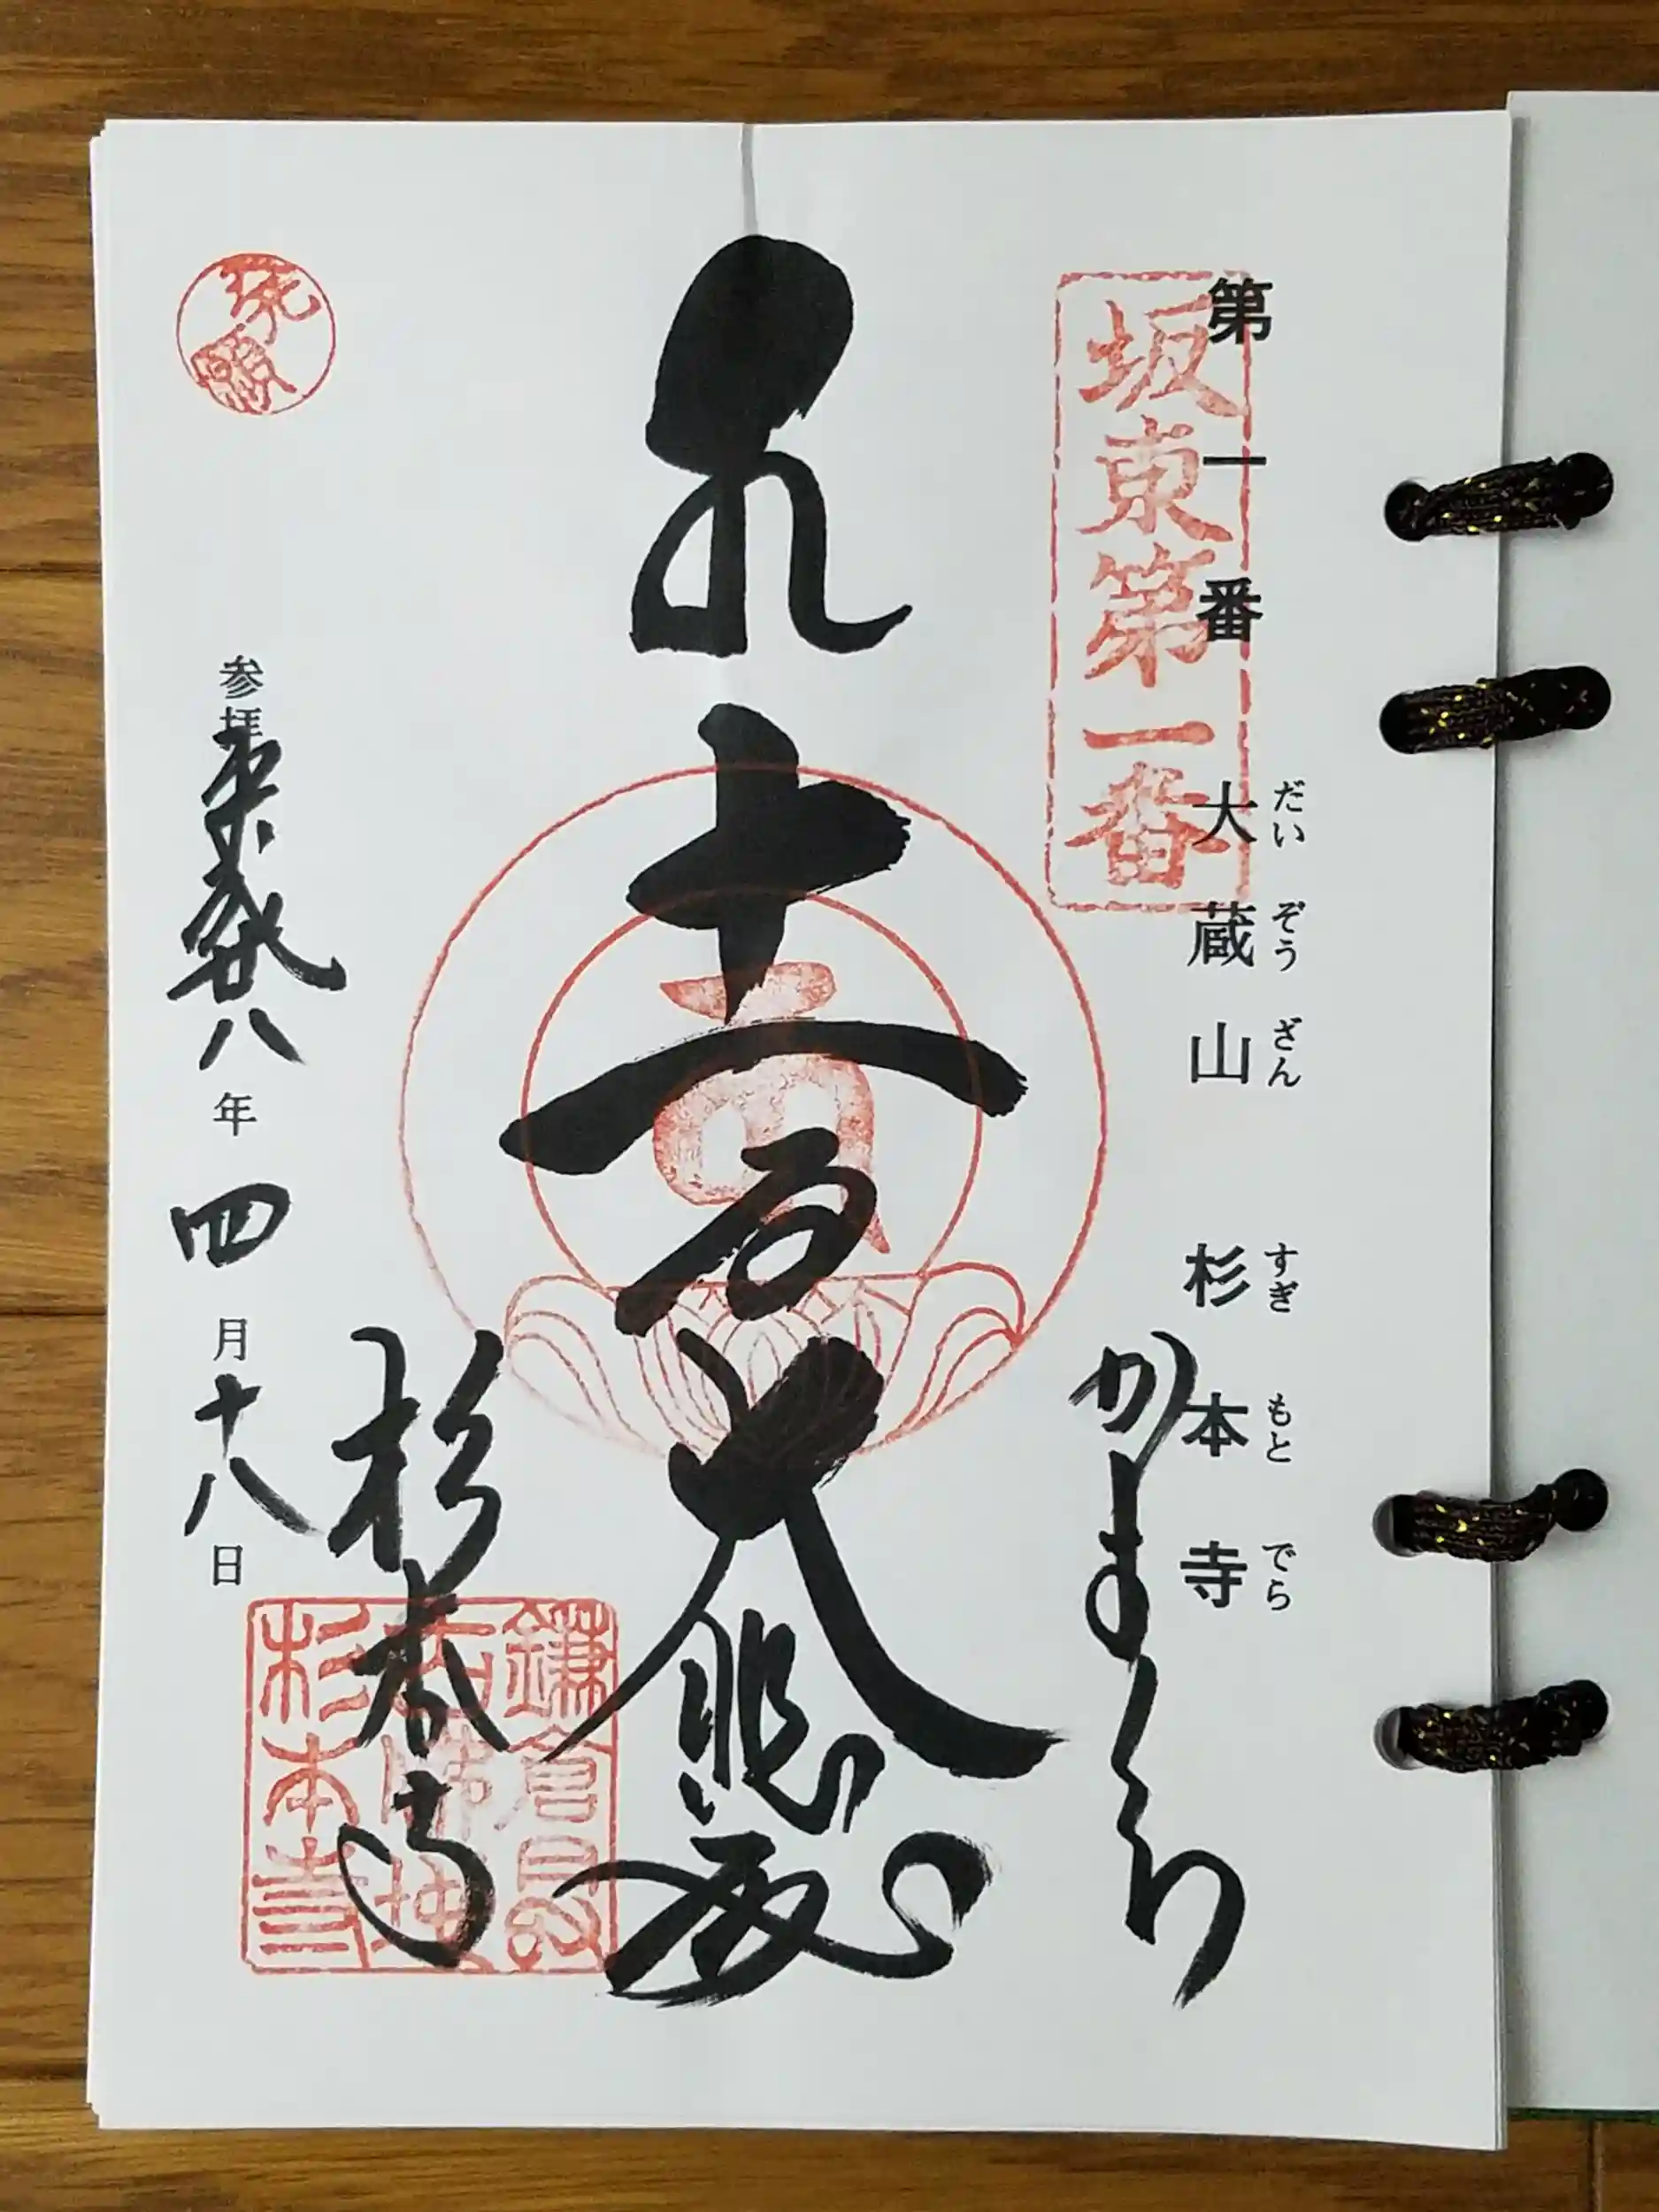 第一番 大蔵山 杉本寺
だいぞうざん すぎもとでら
坂東第一番
かまくら
十一面大悲殿
杉本寺
参拝平成廿八年四月十八日
杉本寺